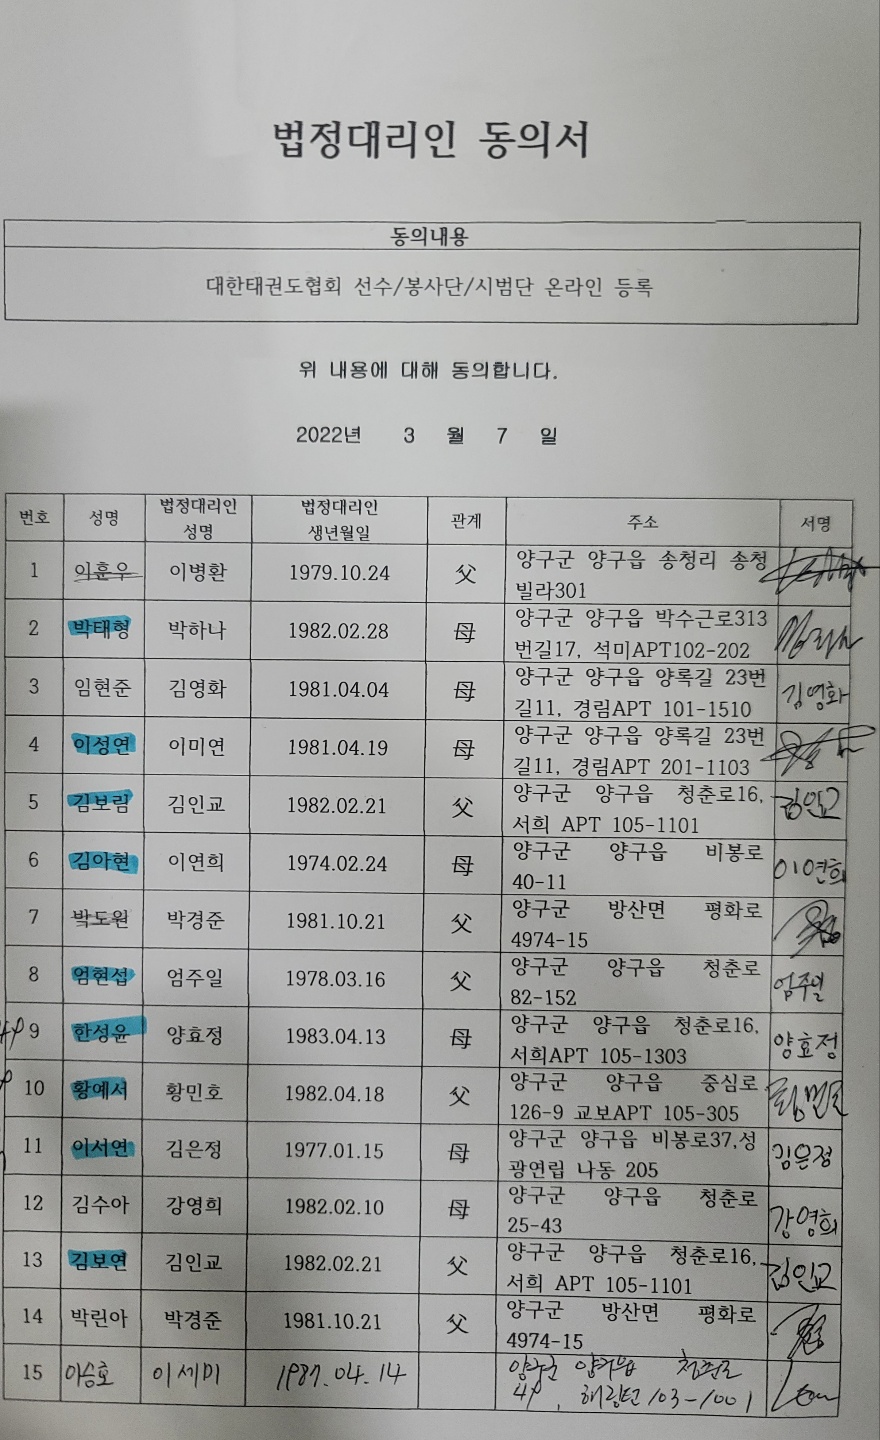 법정대리인 동의서
동의내용
대한태권도협회 선수/봉사단/시범단 온라인 등록
위 내용에 대해 동의합니다.
2022년 3 월 7 일
번호 성명 법정대리인 성명 법정대리인 생년월일 관계 주소 서명
1 이훈우 이병환 1979.10.24 父 양구군 양구읍 송청리 송청
빌라301
2 박태형 박하나 1982.02.28 母 양구군 양구읍 박수근로313
번길17, 석미APT102-202
3 임현준 김영화 1981.04.04 母 양구군 양구읍 양록길 23번 김영화
길11, 경림APT 101-1510
4 이성연 이미연 1981.04.19 母 양구군 양구읍 양록길 23번
길11, 경림APT 201-1103
5 김보림 김인교 1982.02.21 父 양구군 양구읍 청춘로16, 김인교
서희 APT 105-1101
6 김아현 이연희 1974.02.24 母 양구군 양구읍 비봉로 이연희
40-11
7 박도원 박경준 1981.10.21 父 양구군 방산면 평화로
4974-15
8 엄현섭 엄주일 1978.03.16 父 양구군 양구읍 청춘로 엄주일
82-152
9 한성윤 양효정 1983.04.13 母 양구군 양구읍 청춘로16, 양효정
서희APT 105-1303
10 황예서 황민호 1982.04.18 父 양구군 양구읍 중심로
126-9 교보APT 105-305
11 이서연 김은정 1977.01.15 母 양구군 양구읍 비봉로37,성 김은정
광연립 나동 205
12 김수아 강영희 1982.02.10 母 양구군 양구읍 청춘로 강영희
25-43
13 김보연 김인교 1982.02.21 父 양구군 양구읍 청춘로16, 김인교
서희 APT 105-1101
14 박린아 박경준 1981.10.21 父 양구군 방산면 평화로
4974-15
15 이승호 이세미 1987.04.14 양구군 양구읍 청춘로
103-1001